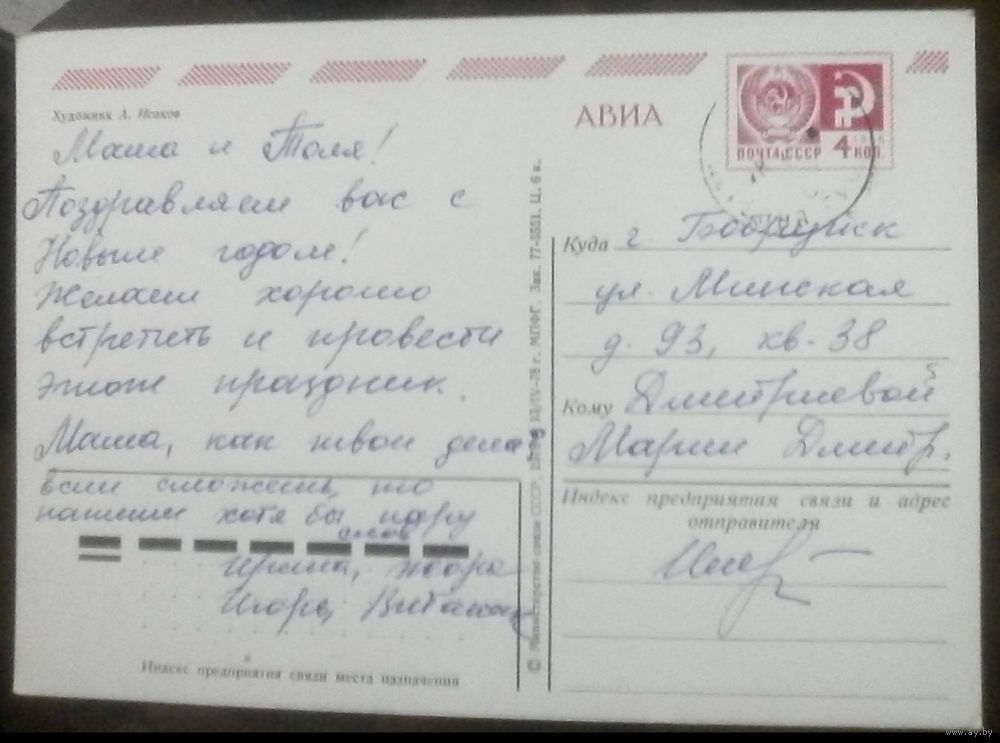 Художник А. Исаков
Маша и Толя!
Поздравляем вас с
Новым годом!
Желаем хорошо
встретить и провести
этот праздник.
Маша, как твои дела?
если сможешь, то
напиши хотя бы пару
слов
Ирина, Жора
Игорь, Виталик
Индекс предприятия связи места назначения
© Министерство связи СССР. 13/IV-78 г. МПФГ. Зак. 77-5551. Ц. 6 к.
АВИА
ПОЧТА СССР 4 КОП.
Куда г. Бобруйск
ул. Минская
д. 93, кв. 38
Кому Дмитриевой
Марии Дмитр.
Индекс предприятия связи и адрес
отправителя
www.ay.by